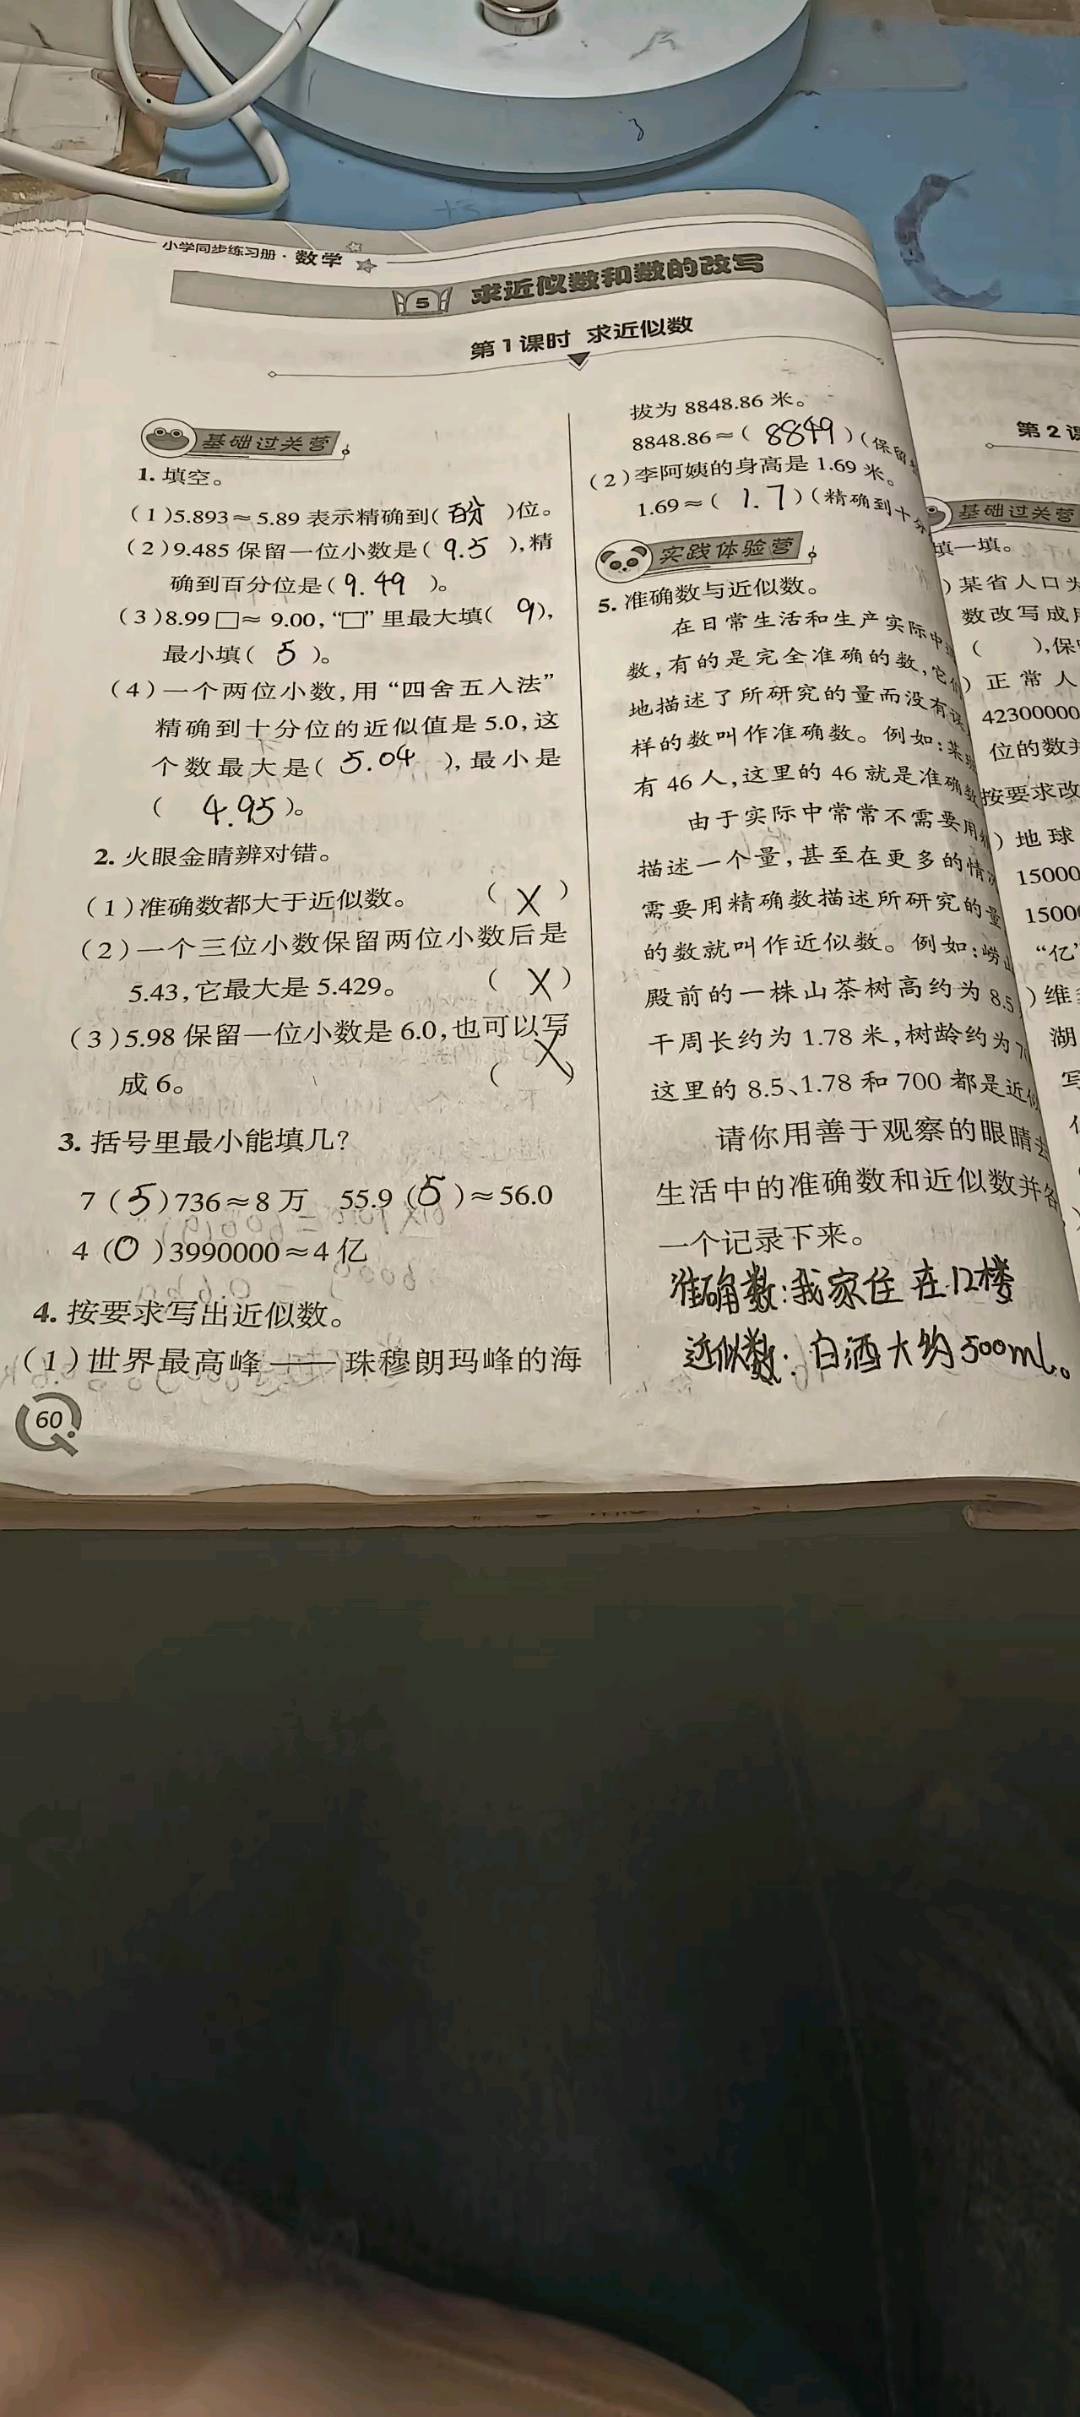 小学同步练习册·数学
5 求近似数和数的改写
第1课时 求近似数
基础过关营
1. 填空。
(1)5.893≈5.89 表示精确到(百分)位。
(2)9.485 保留一位小数是(9.5),精
确到百分位是(9.49)。
(3)8.99□≈9.00,“□”里最大填(9),
最小填(5)。
(4)一个两位小数,用“四舍五入法”
精确到十分位的近似值是 5.0,这
个数最大是(5.04),最小是
(4.95)。
2. 火眼金睛辨对错。
(1)准确数都大于近似数。 (X)
(2)一个三位小数保留两位小数后是
5.43,它最大是 5.429。 (X)
(3)5.98 保留一位小数是 6.0,也可以写
成 6。 (X)
3. 括号里最小能填几?
7(5)736≈8万 55.9(5)≈56.0
4(0)3990000≈4亿
4. 按要求写出近似数。
(1)世界最高峰——珠穆朗玛峰的海
60
拔为 8848.86 米。
8848.86≈(8849)(保留
(2)李阿姨的身高是 1.69 米。
1.69≈(1.7)(精确到十分
实践体验营
5. 准确数与近似数。
在日常生活和生产实际中
数,有的是完全准确的数,它
地描述了所研究的量而没有
样的数叫作准确数。例如:某
有 46 人,这里的 46 就是准确数
由于实际中常常不需要用
描述一个量,甚至在更多的情
需要用精确数描述所研究的量
的数就叫作近似数。例如:崂山
殿前的一株山茶树高约为 8.5
干周长约为 1.78 米,树龄约为
这里的 8.5、1.78 和 700 都是近似
请你用善于观察的眼睛去
生活中的准确数和近似数并各
一个记录下来。
准确数:我家住在12楼
近似数:白酒大约500ml。
第2课
基础过关营
填一填。
)某省人口为
数改写成用
( ),保
)正常人
42300000
位的数并
按要求改
)地球
15000
1500
“亿”
)维
湖
写